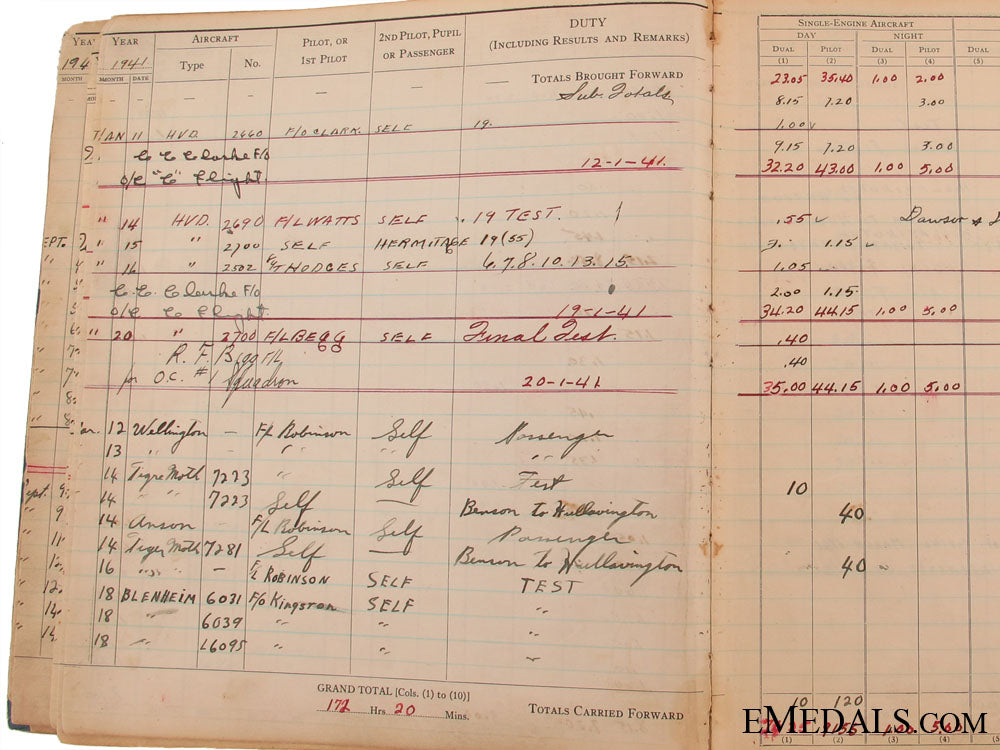 YEAR AIRCRAFT PILOT, OR 1ST PILOT 2ND PILOT, PUPIL OR PASSENGER DUTY (INCLUDING RESULTS AND REMARKS) SINGLE-ENGINE AIRCRAFT
1941 Type No. DAY NIGHT
MONTH DATE DUAL PILOT DUAL PILOT DUAL
(1) (2) (3) (4) (5)
— — — — — — TOTALS BROUGHT FORWARD 23.05 35.40 1.00 2.00
Sub. Totals 8.15 7.20 3.00
JAN 11 HVD. 2660 F/O CLARK. SELF 19. 1.00
C C Clarke F/O 9.15 7.20 3.00
O/C "C" Flight. 12-1-41. 32.20 43.00 1.00 5.00
" 14 HVD. 2690 F/L WATTS SELF 19 TEST. .55 Dawson &
" 15 " 2700 SELF HERMITAGE 19(55) 1.15
" 16 " 2502 F/T HODGES SELF 6.7.8.10.13.15. 1.05
C. C. Clarke F/O 2.00 1.15
O/C C Flight. 19-1-41 34.20 44.15 1.00 5.00
" 20 " 2700 F/L BEGG SELF Final Test. .40
R. F. Begg F/L .40
for O.C. #1 Squadron 20-1-41 35.00 44.15 1.00 5.00
12 Wellington — F/L Robinson Self Passenger
13 " " " "
14 Tigre Moth 7223 " Self Test 10
14 " " 7223 Self — Benson to Hullavington 40
14 Anson — F/L Robinson Self Passenger
14 Tiger Moth 7281 Self — Benson to Hullavington 40
16 " " — F/L ROBINSON SELF TEST
18 BLENHEIM 6031 F/O Kingston SELF "
18 " 6039 " " "
18 " L6095 " " "
GRAND TOTAL [Cols. (1) to (10)] 10 120
172 Hrs. 20 Mins. TOTALS CARRIED FORWARD 1.00 5.00
(1) (2) (3) (4) (5)
EMEDALS.COM